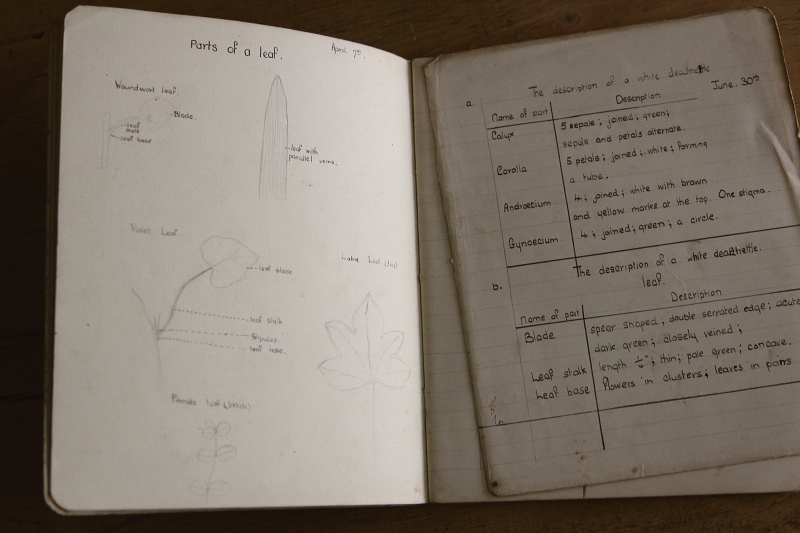 Parts of a leaf.
April 7th.
Woundwort leaf
Blade.
leaf stalk
leaf base
leaf with
parallel veins.
Violet Leaf.
leaf blade
leaf stalk
Stipules.
leaf base.
Lobed leaf (Ivy)
Pinnate leaf (Vetch)
a. The description of a white deadnettle
June. 30th
Name of part Description
Calyx 5 sepals; joined; green;
sepals and petals alternate.
Corolla 5 petals; joined; white; forming
a tube.
Androecium 4; joined; white with brown
and yellow marks at the top. One stigma.
Gynoecium 4; joined; green; a circle.
b. The description of a white deadnettle
leaf.
Name of part Description
Blade spear shaped; double serrated edge; acute
dark green; closely veined;
Leaf stalk length ¼"; thin; pale green; concave.
Leaf base Flowers in clusters; leaves in pairs